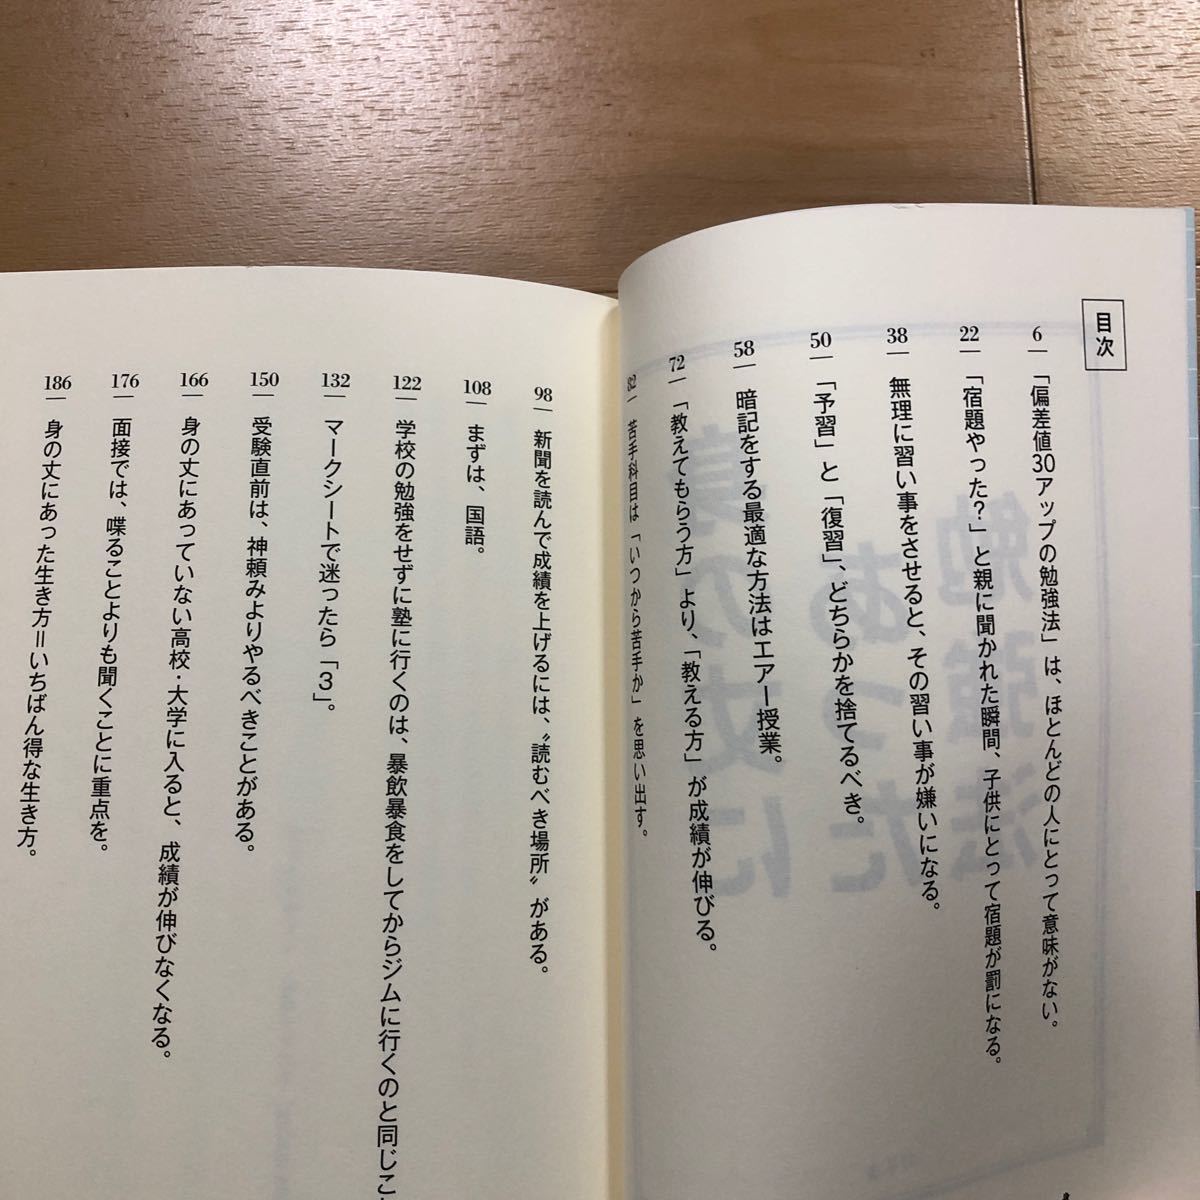 目次
6 「偏差値30アップの勉強法」は、ほとんどの人にとって意味がない。
22 「宿題やった？」と親に聞かれた瞬間、子供にとって宿題が罰になる。
38 無理に習い事をさせると、その習い事が嫌いになる。
50 「予習」と「復習」、どちらかを捨てるべき。
58 暗記をする最適な方法はエアー授業。
72 「教えてもらう方」より、「教える方」が成績が伸びる。
82 苦手科目は「いつから苦手か」を思い出す。
98 新聞を読んで成績を上げるには、〝読むべき場所〟がある。
108 まずは、国語。
122 学校の勉強をせずに塾に行くのは、暴飲暴食をしてからジムに行くのと同じこ
132 マークシートで迷ったら「3」。
150 受験直前は、神頼みよりやるべきことがある。
166 身の丈にあっていない高校・大学に入ると、成績が伸びなくなる。
176 面接では、喋ることよりも聞くことに重点を。
186 身の丈にあった生き方＝いちばん得な生き方。